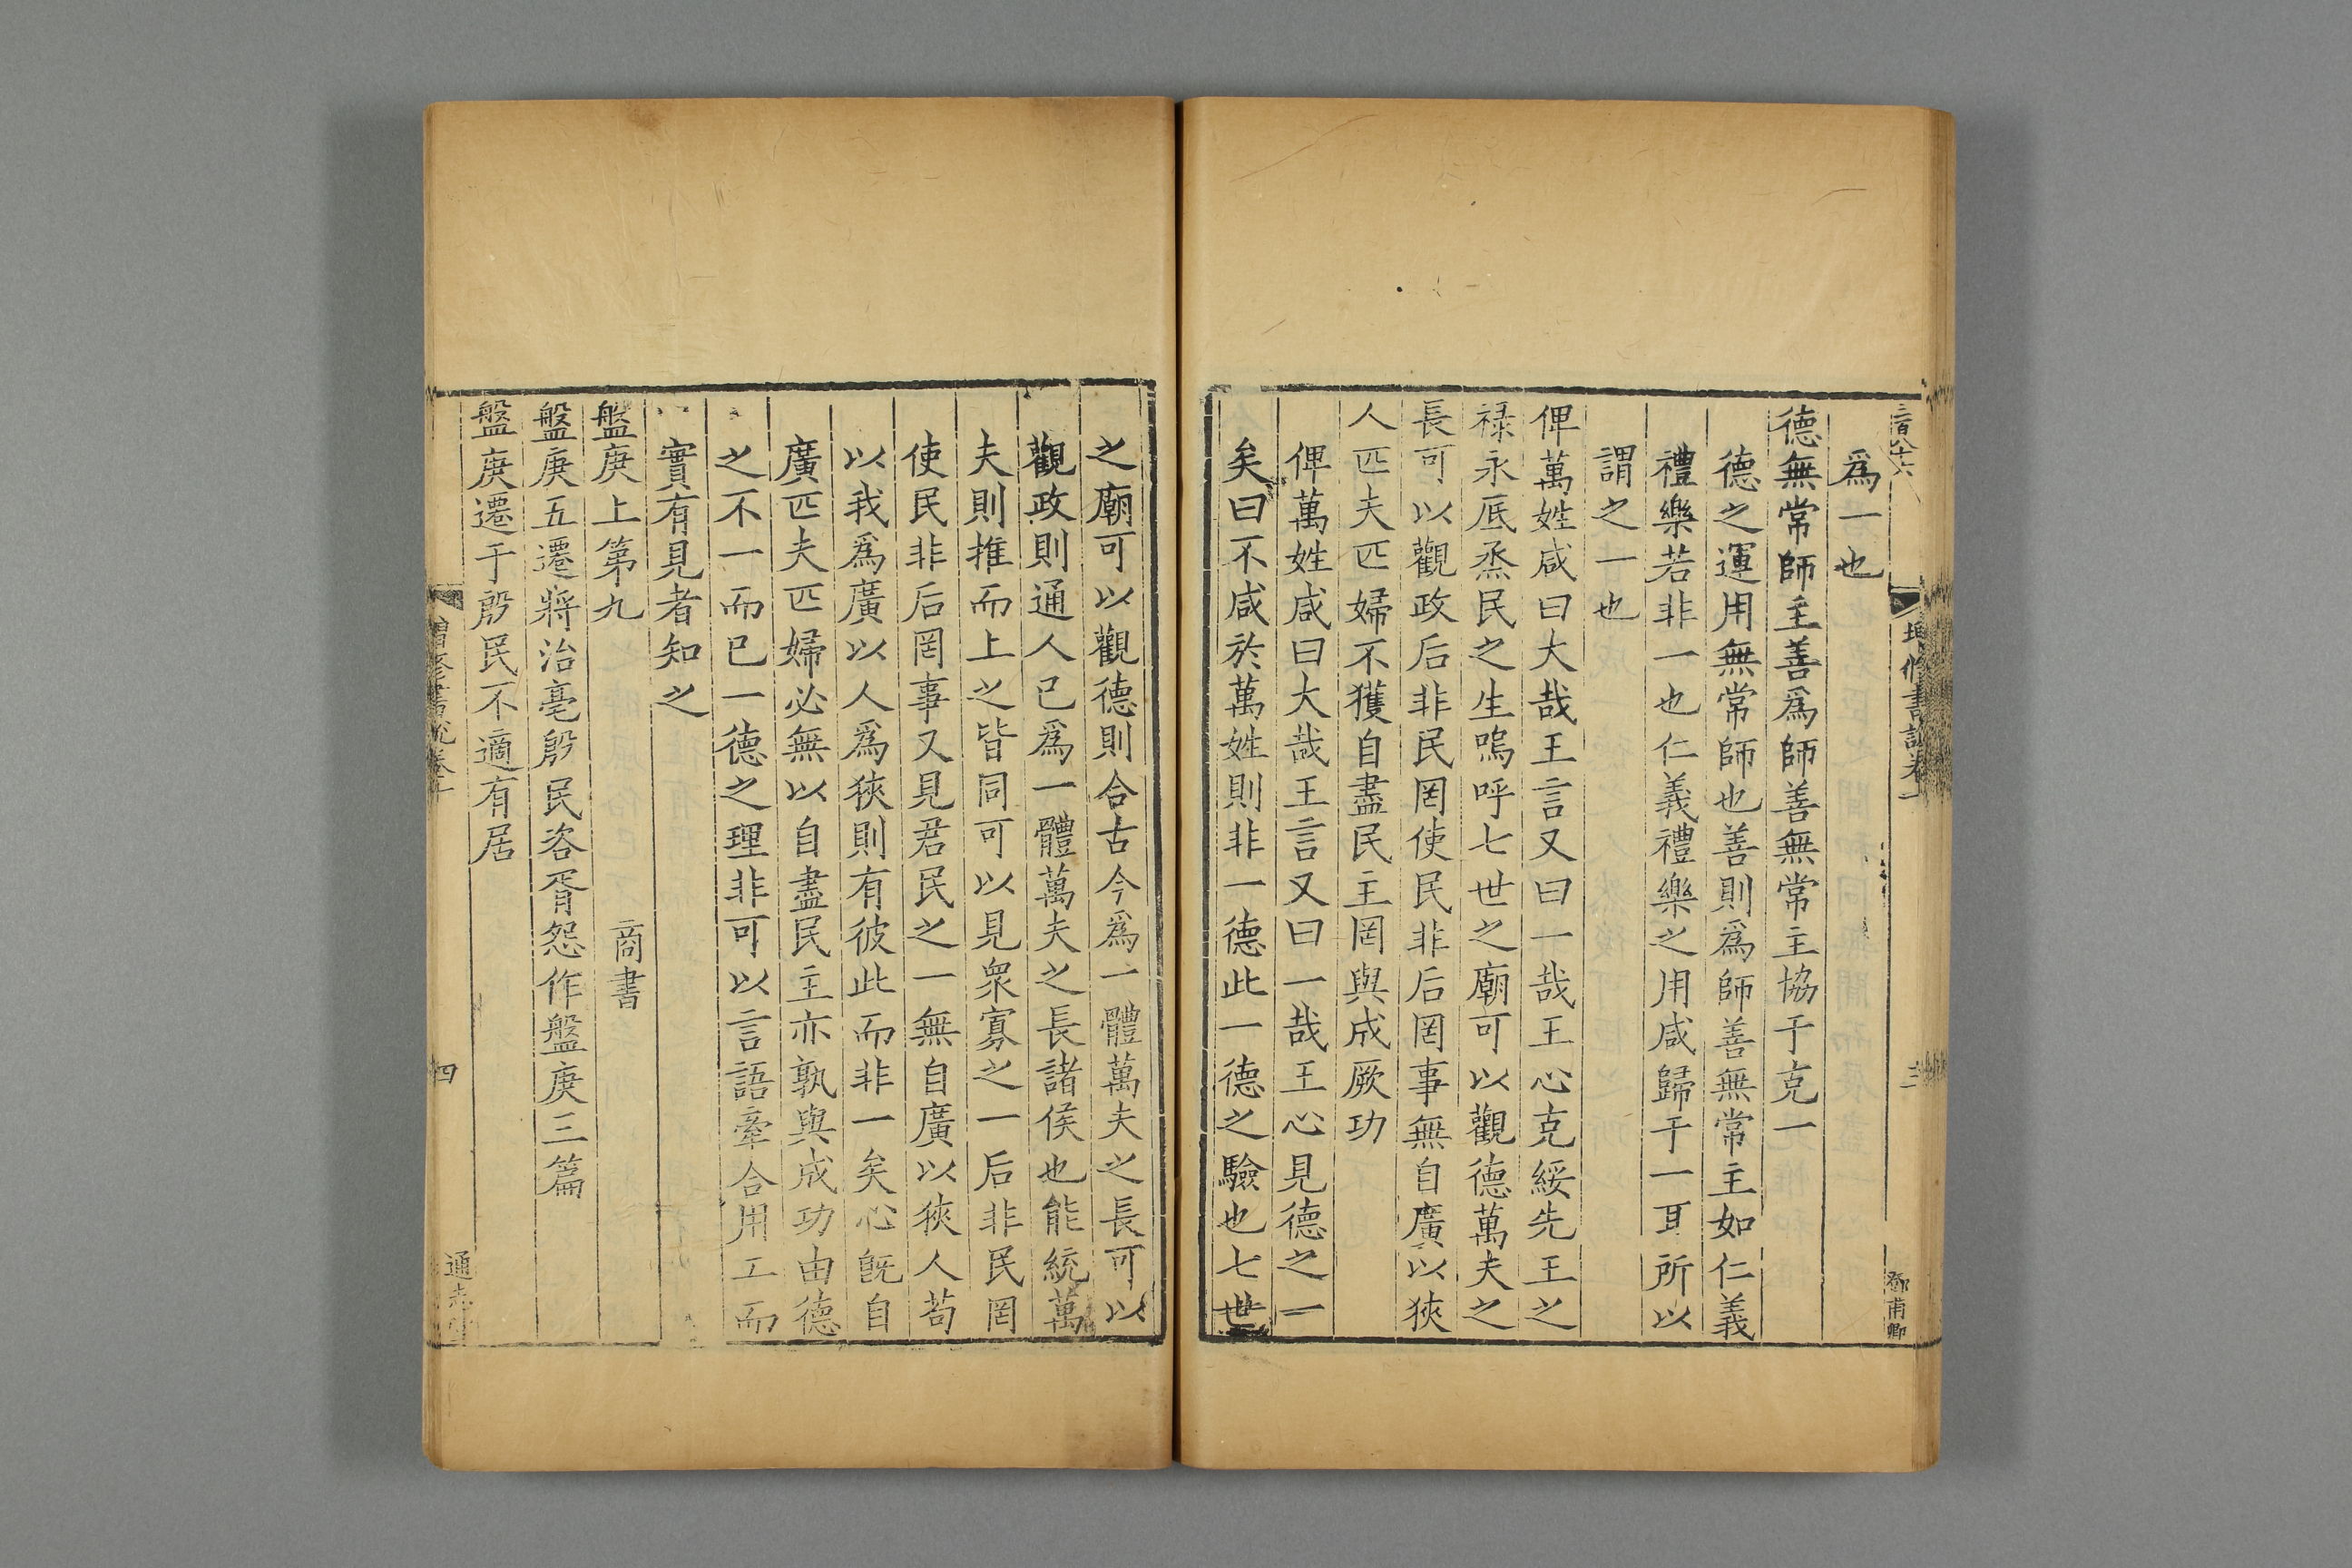 三百八十六
增修書說卷十
三
鄧甫卿
爲一也
德無常師主善爲師善無常主協于克一
德之運用無常師也善則爲師善無常主如仁義
禮樂若非一也仁義禮樂之用咸歸于一耳所以
謂之一也
俾萬姓咸曰大哉王言又曰一哉王心克綏先王之
祿永厎烝民之生嗚呼七世之廟可以觀德萬夫之
長可以觀政后非民罔使民非后罔事無自廣以狹
人匹夫匹婦不獲自盡民主罔與成厥功
俾萬姓咸曰大哉王言又曰一哉王心見德之一
矣曰不咸於萬姓則非一德此一德之驗也七世
之廟可以觀德則合古今爲一體萬夫之長可以
觀政則通人已爲一體萬夫之長諸侯也能統萬
夫則推而上之皆同可以見衆寡之一后非民罔
使民非后罔事又見君民之一無自廣以狹人苟
以我爲廣以人爲狹則有彼此而非一矣心旣自
廣匹夫匹婦必無以自盡民主亦孰與成功由德
之不一而已一德之理非可以言語牽合用工而
實有見者知之
盤庚上第九
商書
盤庚五遷將治亳殷民咨胥怨作盤庚三篇
盤庚遷于殷民不適有居
增修書說卷十
四
通志堂